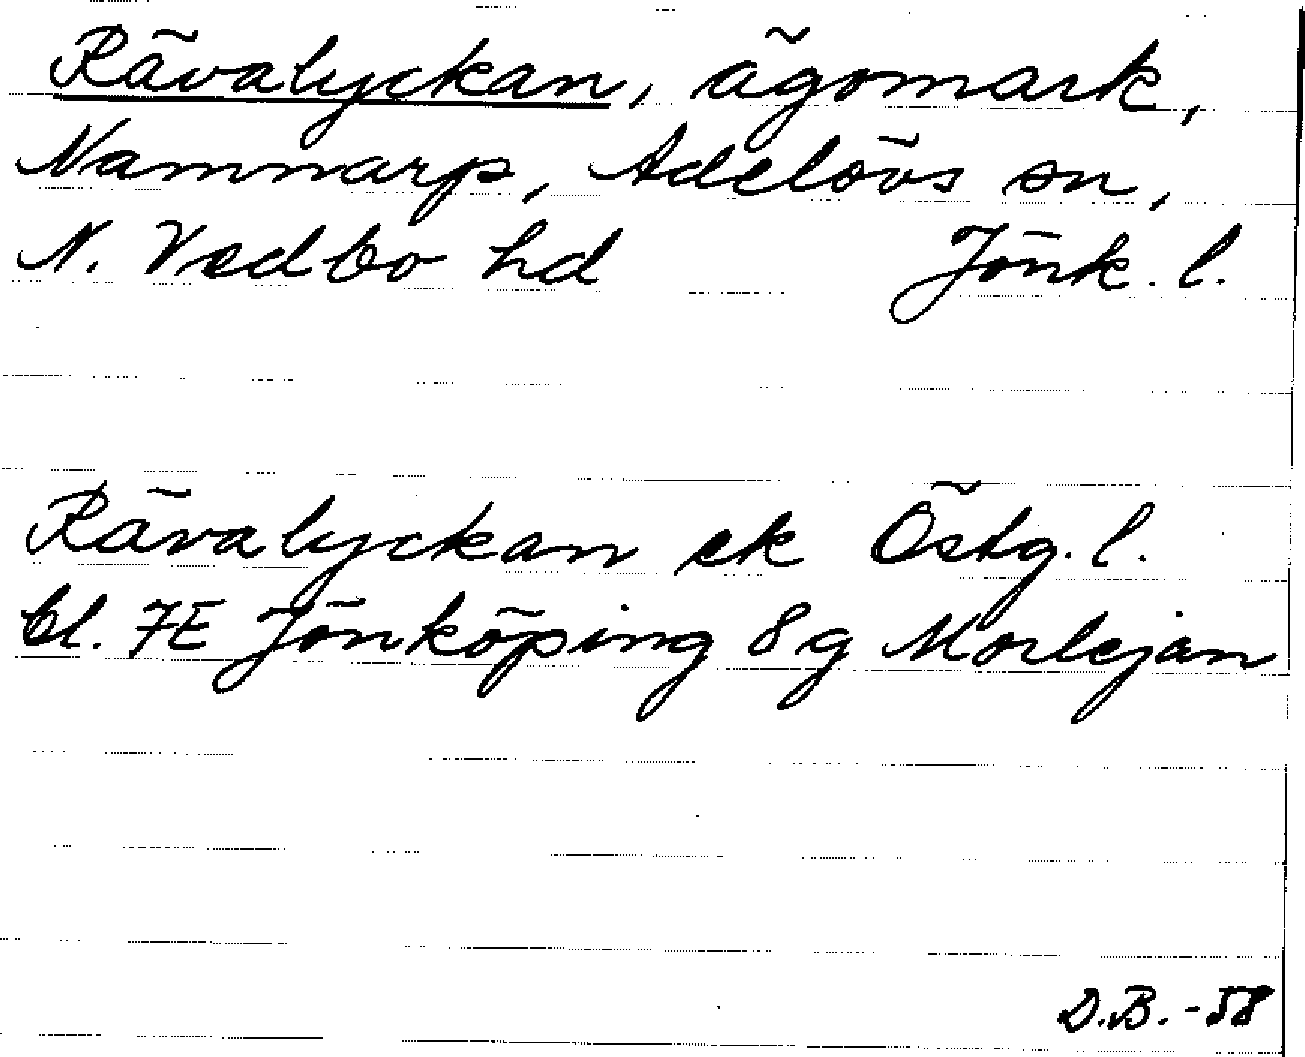 Rävalyckan, ägomark,
Nammarp, Adelövs sn,
N. Vedbo hd Jönk. l.
Rävalyckan ek Östg. l.
bl. 7E Jönköping 8g Morlejan
D.B. -58